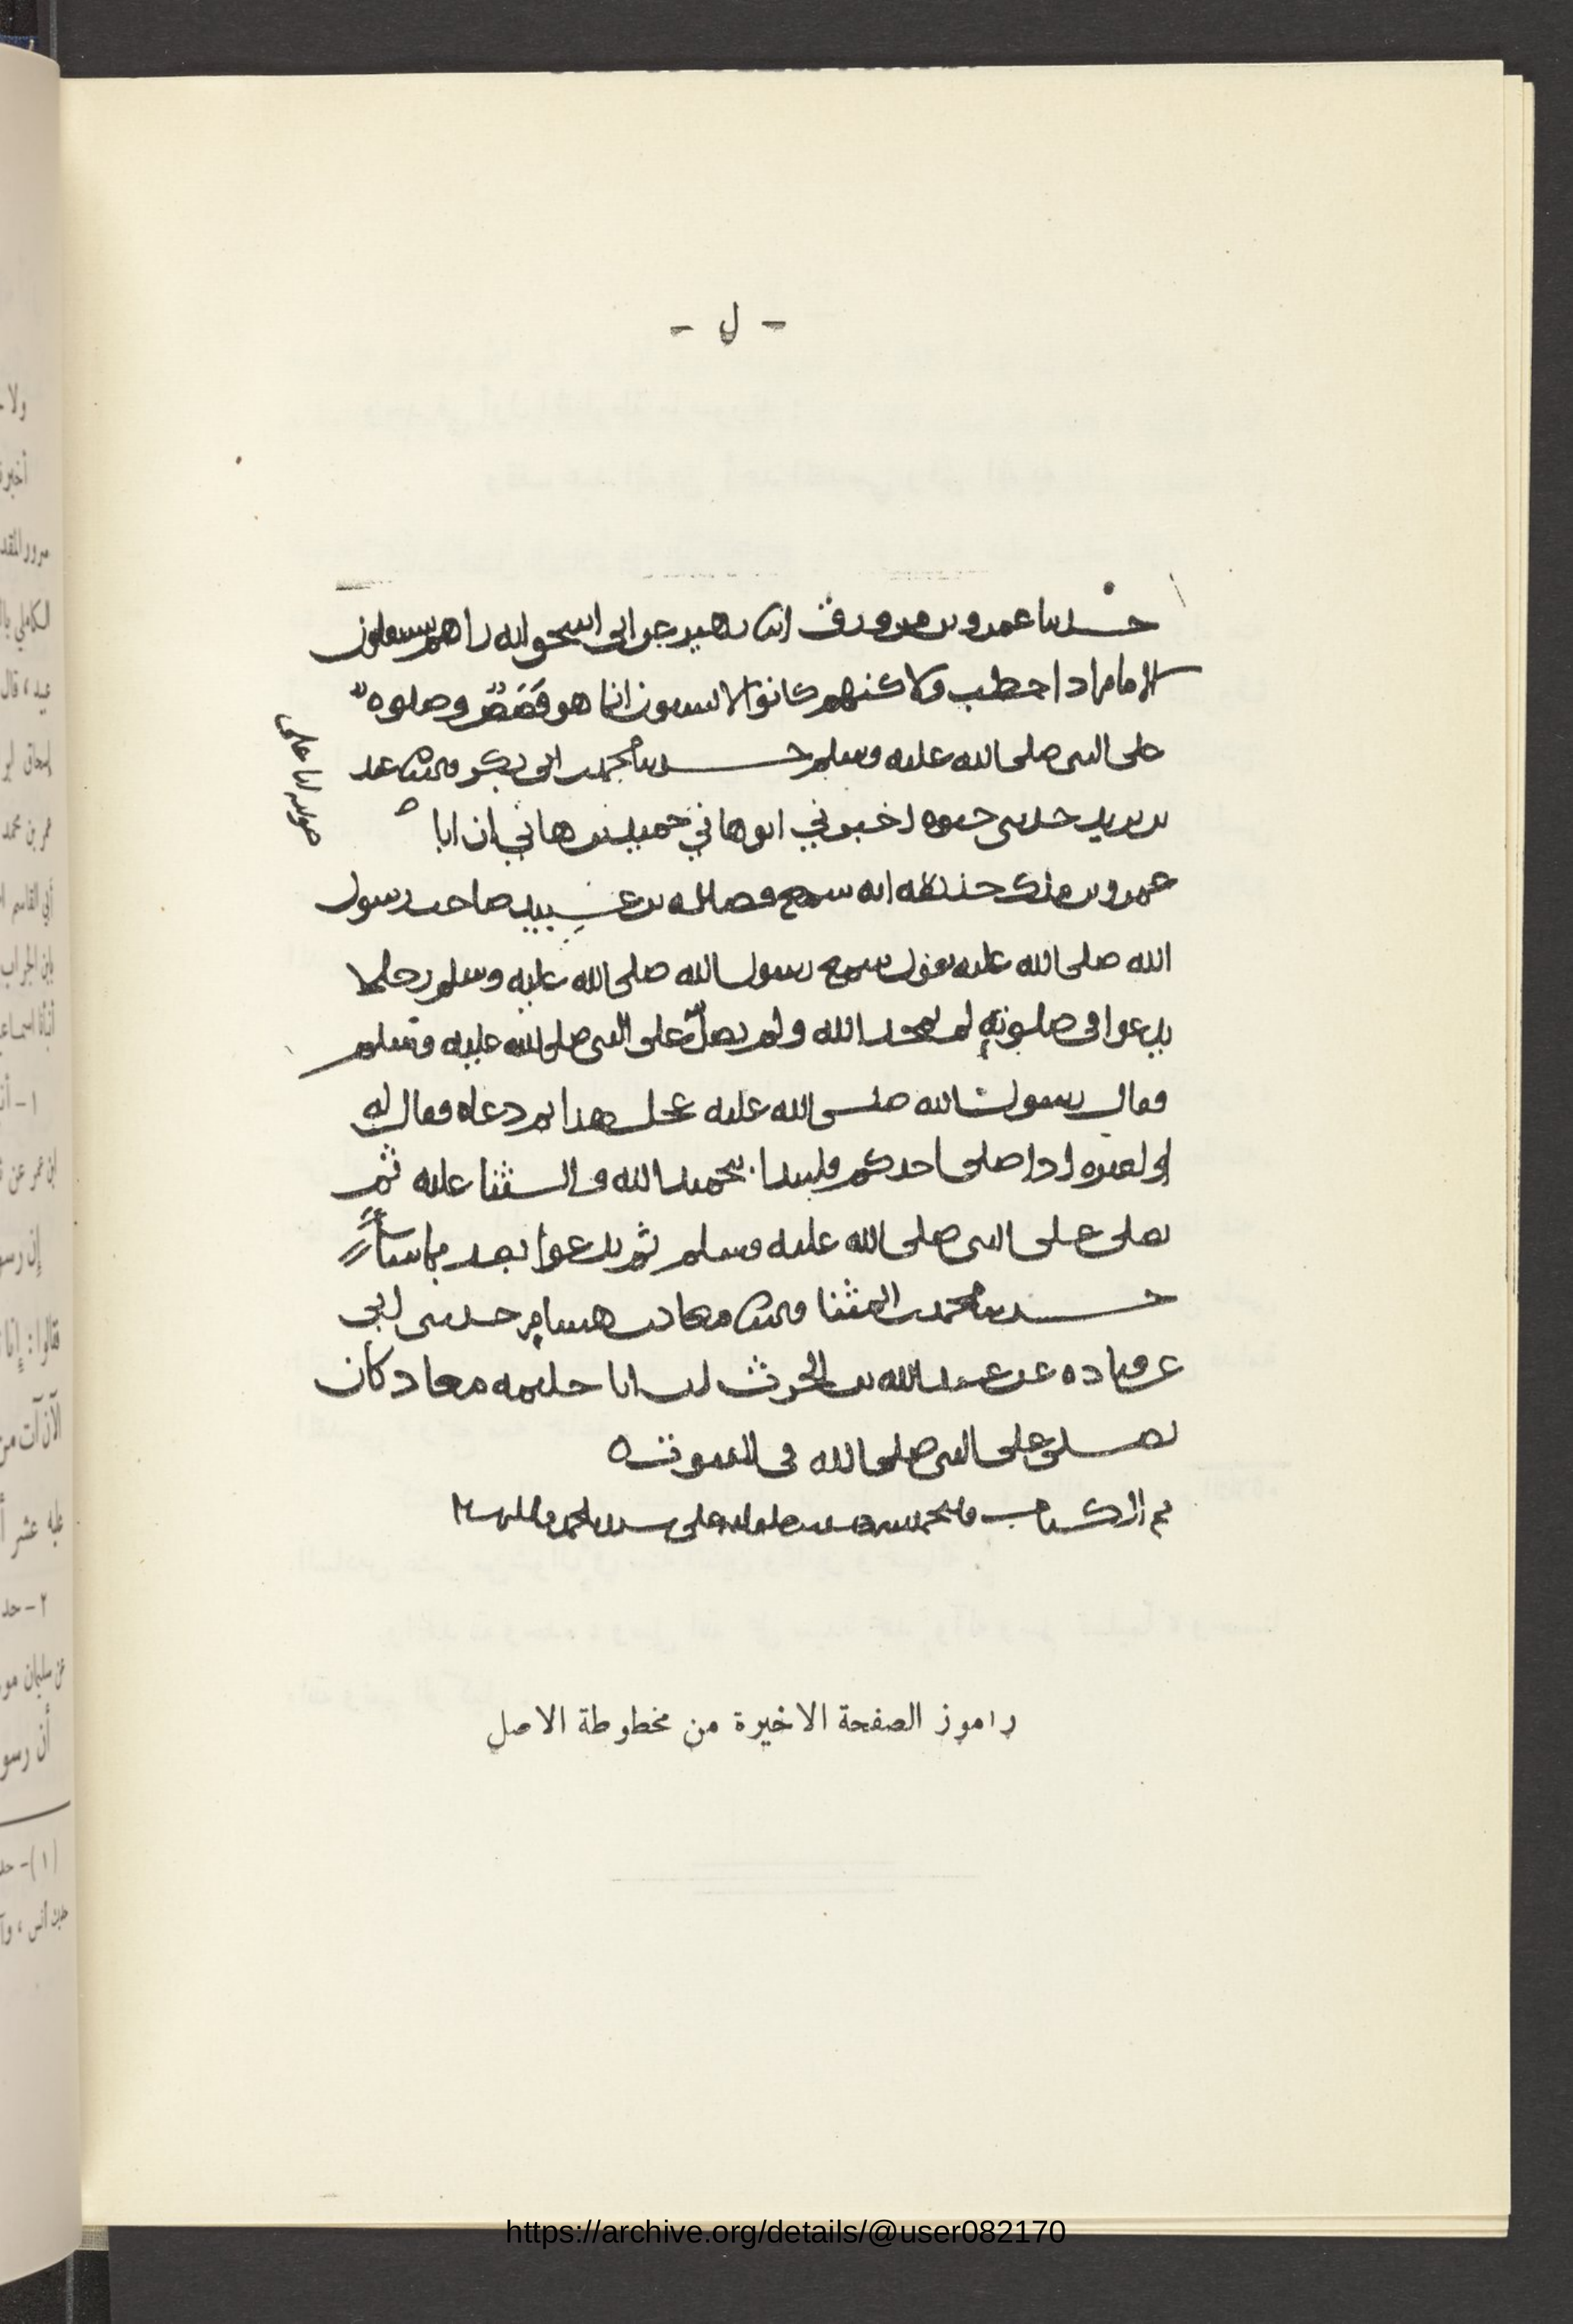 - ل -
حدثنا عمرو بن مرزوق انا زهير عن ابي اسحق انه راهم يستقبلون
الامام اذا خطب ولاكنهم كانوا لا يسعون انما هو قصص وصلوه
على النبي صلى الله عليه وسلم حدثنا محمد بن ابي بكر قال ثنا عبد
بن يزيد حدثني حيوه اخبرني ابو هاني حميد بن هاني ان ابا
عمرو بن ملك حدثه انه سمع فضاله بن عبيد صاحب رسول
الله صلى الله عليه يقول سمع رسول الله صلى الله عليه وسلم رجلا
يدعوا في صلوته لم يحمد الله ولم يصل على النبي صلى الله عليه وسلم
فقال رسول الله صلى الله عليه عجل هذا ثم دعاه فقال له
او لغيره اذا صلى احدكم فليبدا بحميد الله والثنا عليه ثم
يصلي على النبي صلى الله عليه وسلم ثم يدعوا بعد بما شا
حدثنا محمد بن المثنا قال ثنا معاذ بن هشام حدثني ابي
عن قتاده عن عبد الله بن الحرث ان ابا حليمه معاذ كان
يصلي على النبي صلى الله في القنوت
تم الكتاب والحمد لله
راموز الصفحة الاخيرة من مخطوطة الاصل
https://archive.org/details/@user082170